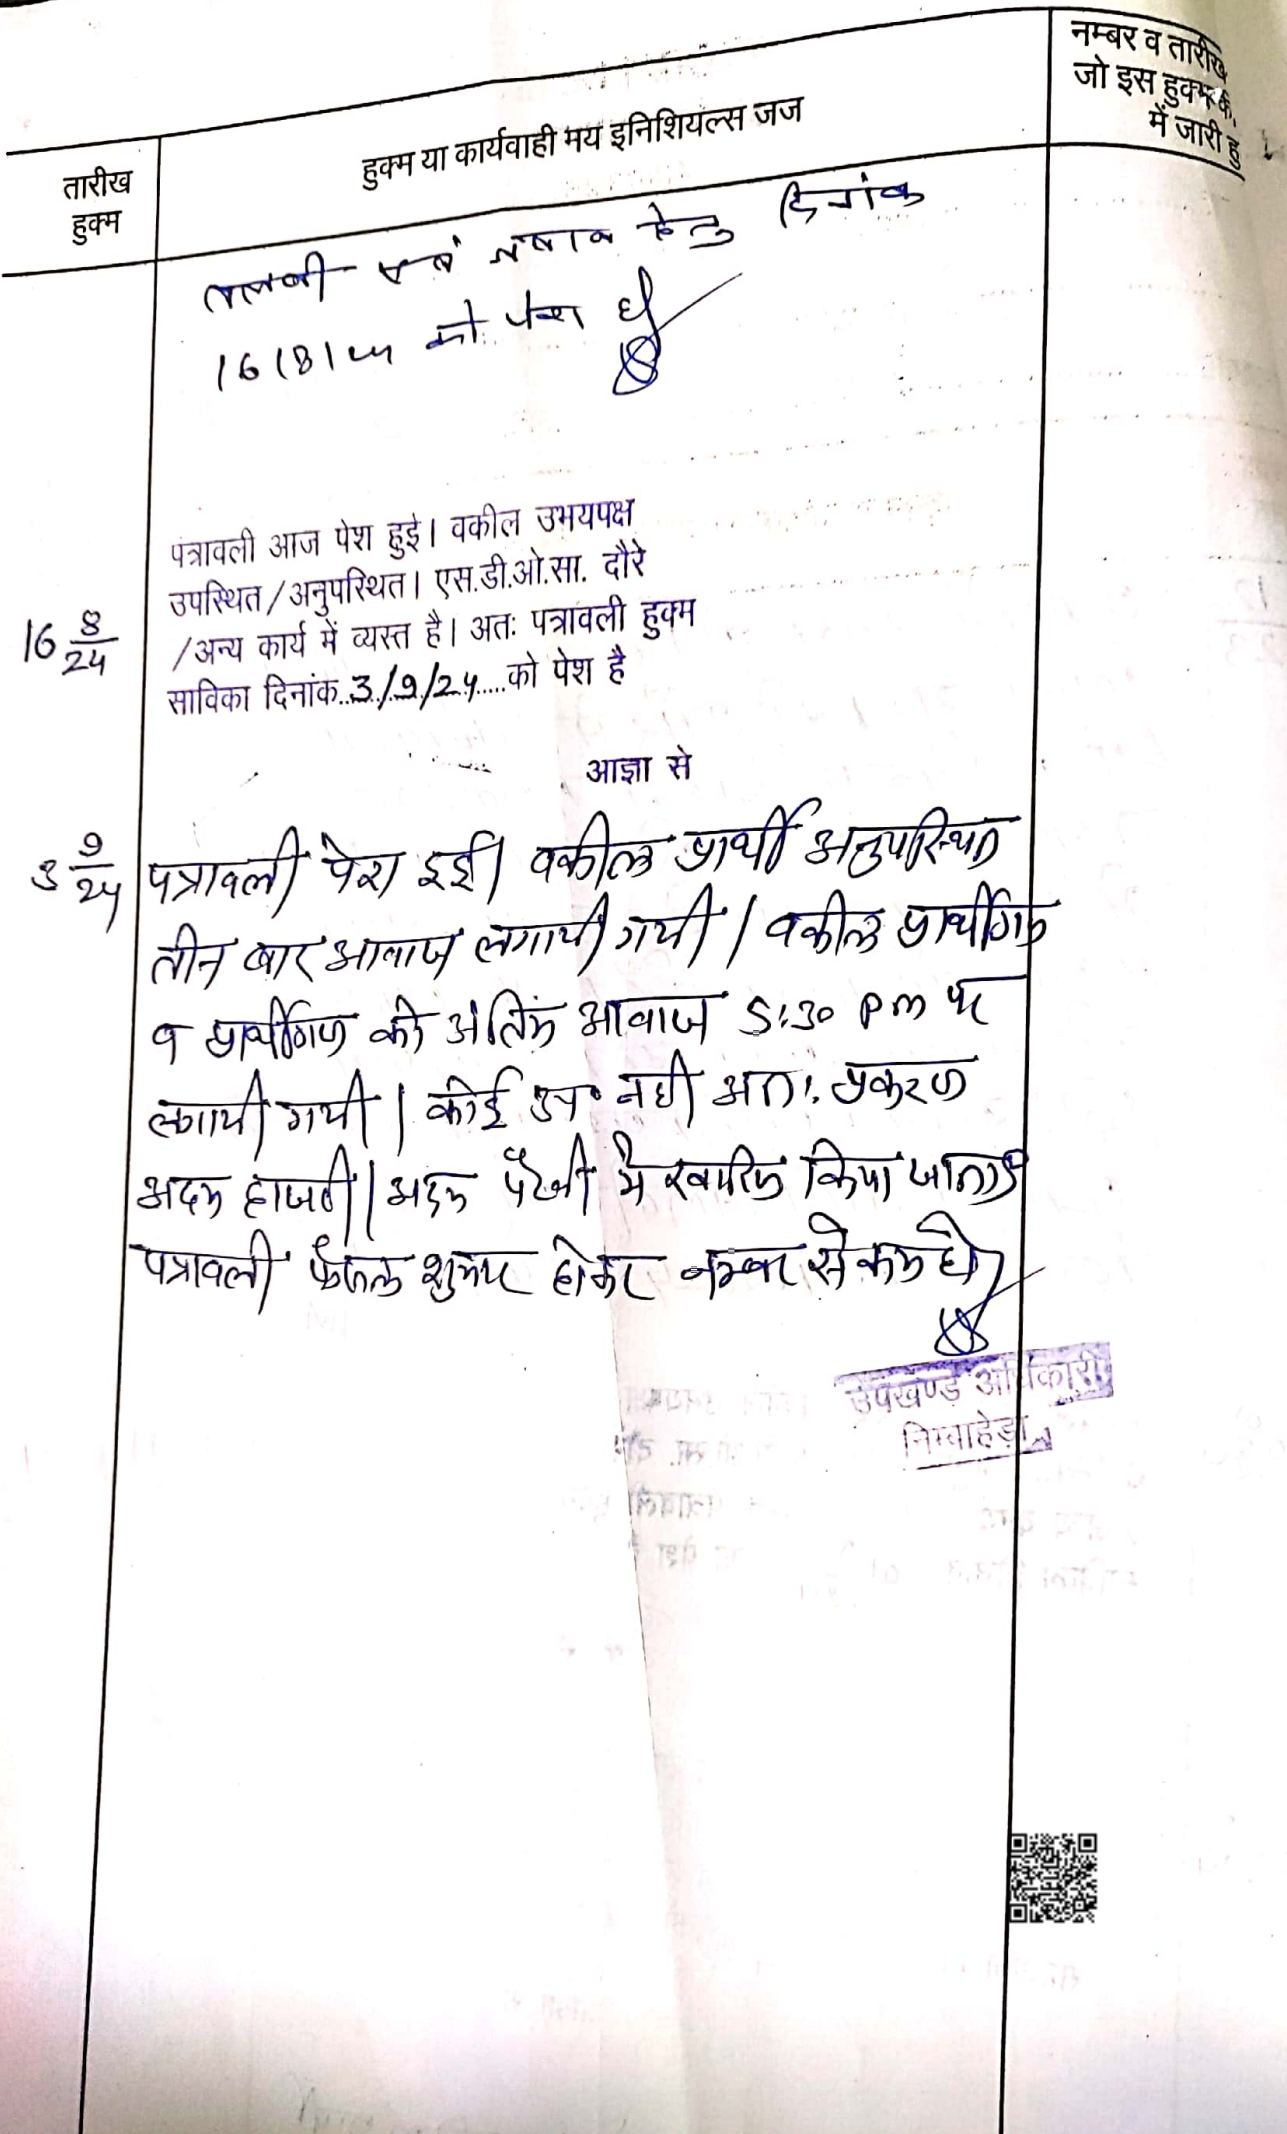 नम्बर व तारीख
जो इस हुक्म की
में जारी हु
तारीख
हुक्म
हुक्म या कार्यवाही मय इनिशियल्स जज
तलबी एवं जवाब हेतु दिनांक
16/8/24 को पेश हो
पत्रावली आज पेश हुई। वकील उभयपक्ष
उपस्थित/अनुपस्थित। एस.डी.ओ.सा. दौरे
16 8/24
/अन्य कार्य में व्यस्त है। अतः पत्रावली हुक्म
साविका दिनांक..3/9/24.....को पेश है
आज्ञा से
3 9/24
पत्रावली पेश हुई। वकील प्रार्थी अनुपस्थित
तीन बार आवाज लगायी गयी। वकील प्रार्थीगण
व प्रार्थीगण को अंतिम आवाज 5:30 pm पर
लगायी गयी। कोई उप० नही अतः प्रकरण
अदम हाजरी/अदम पैरवी मे खारिज किया जाता है
पत्रावली फैसल शुमार होकर नम्बर से कम हो
उपखण्ड अधिकारी
निम्बाहेड़ा